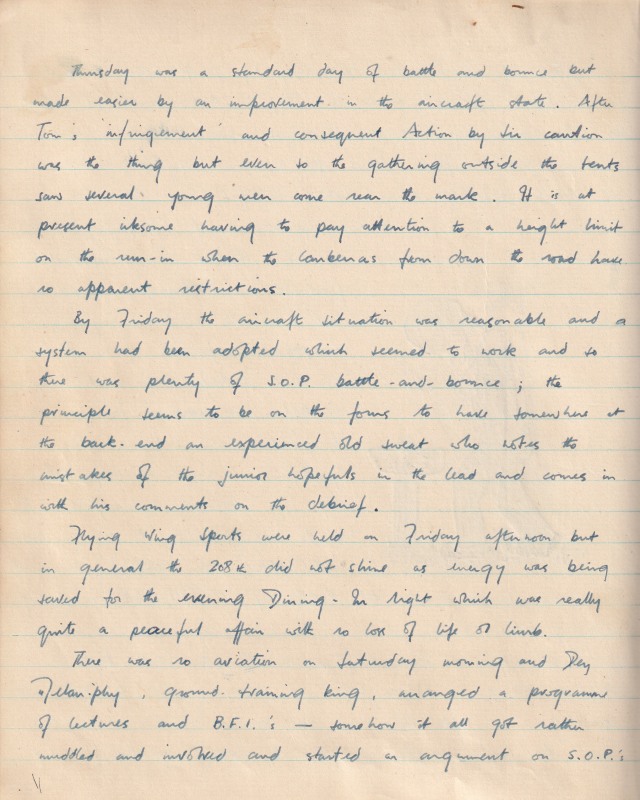 Thursday was a standard day of battle and bounce but
made easier by an improvement in the aircraft state. After
Tom's 'infringement' and consequent Action by Sir caution
was the thing but even so the gathering outside the tents
saw several young men come near the mark. It is at
present irksome having to pay attention to a height limit
on the run-in when the Canberras from down the road have
no apparent restrictions.
By Friday the aircraft situation was reasonable and a
system had been adopted which seemed to work and so
there was plenty of S.O.P. battle-and-bounce; the
principle seems to be on the forms to have somewhere at
the back-end an experienced old sweat who notes the
mistakes of the junior hopefuls in the lead and comes in
with his comments on the debrief.
Flying Wing Sports were held on Friday afternoon but
in general the 208 did not shine as energy was being
saved for the evening Dining-In night which was really
quite a peaceful affair with no loss of life or limb.
There was no aviation on Saturday morning and
ground-training king, arranged a programme
of lectures and B.F.I.'s — somehow it all got rather
muddled and involved and started an argument on S.O.P.'s